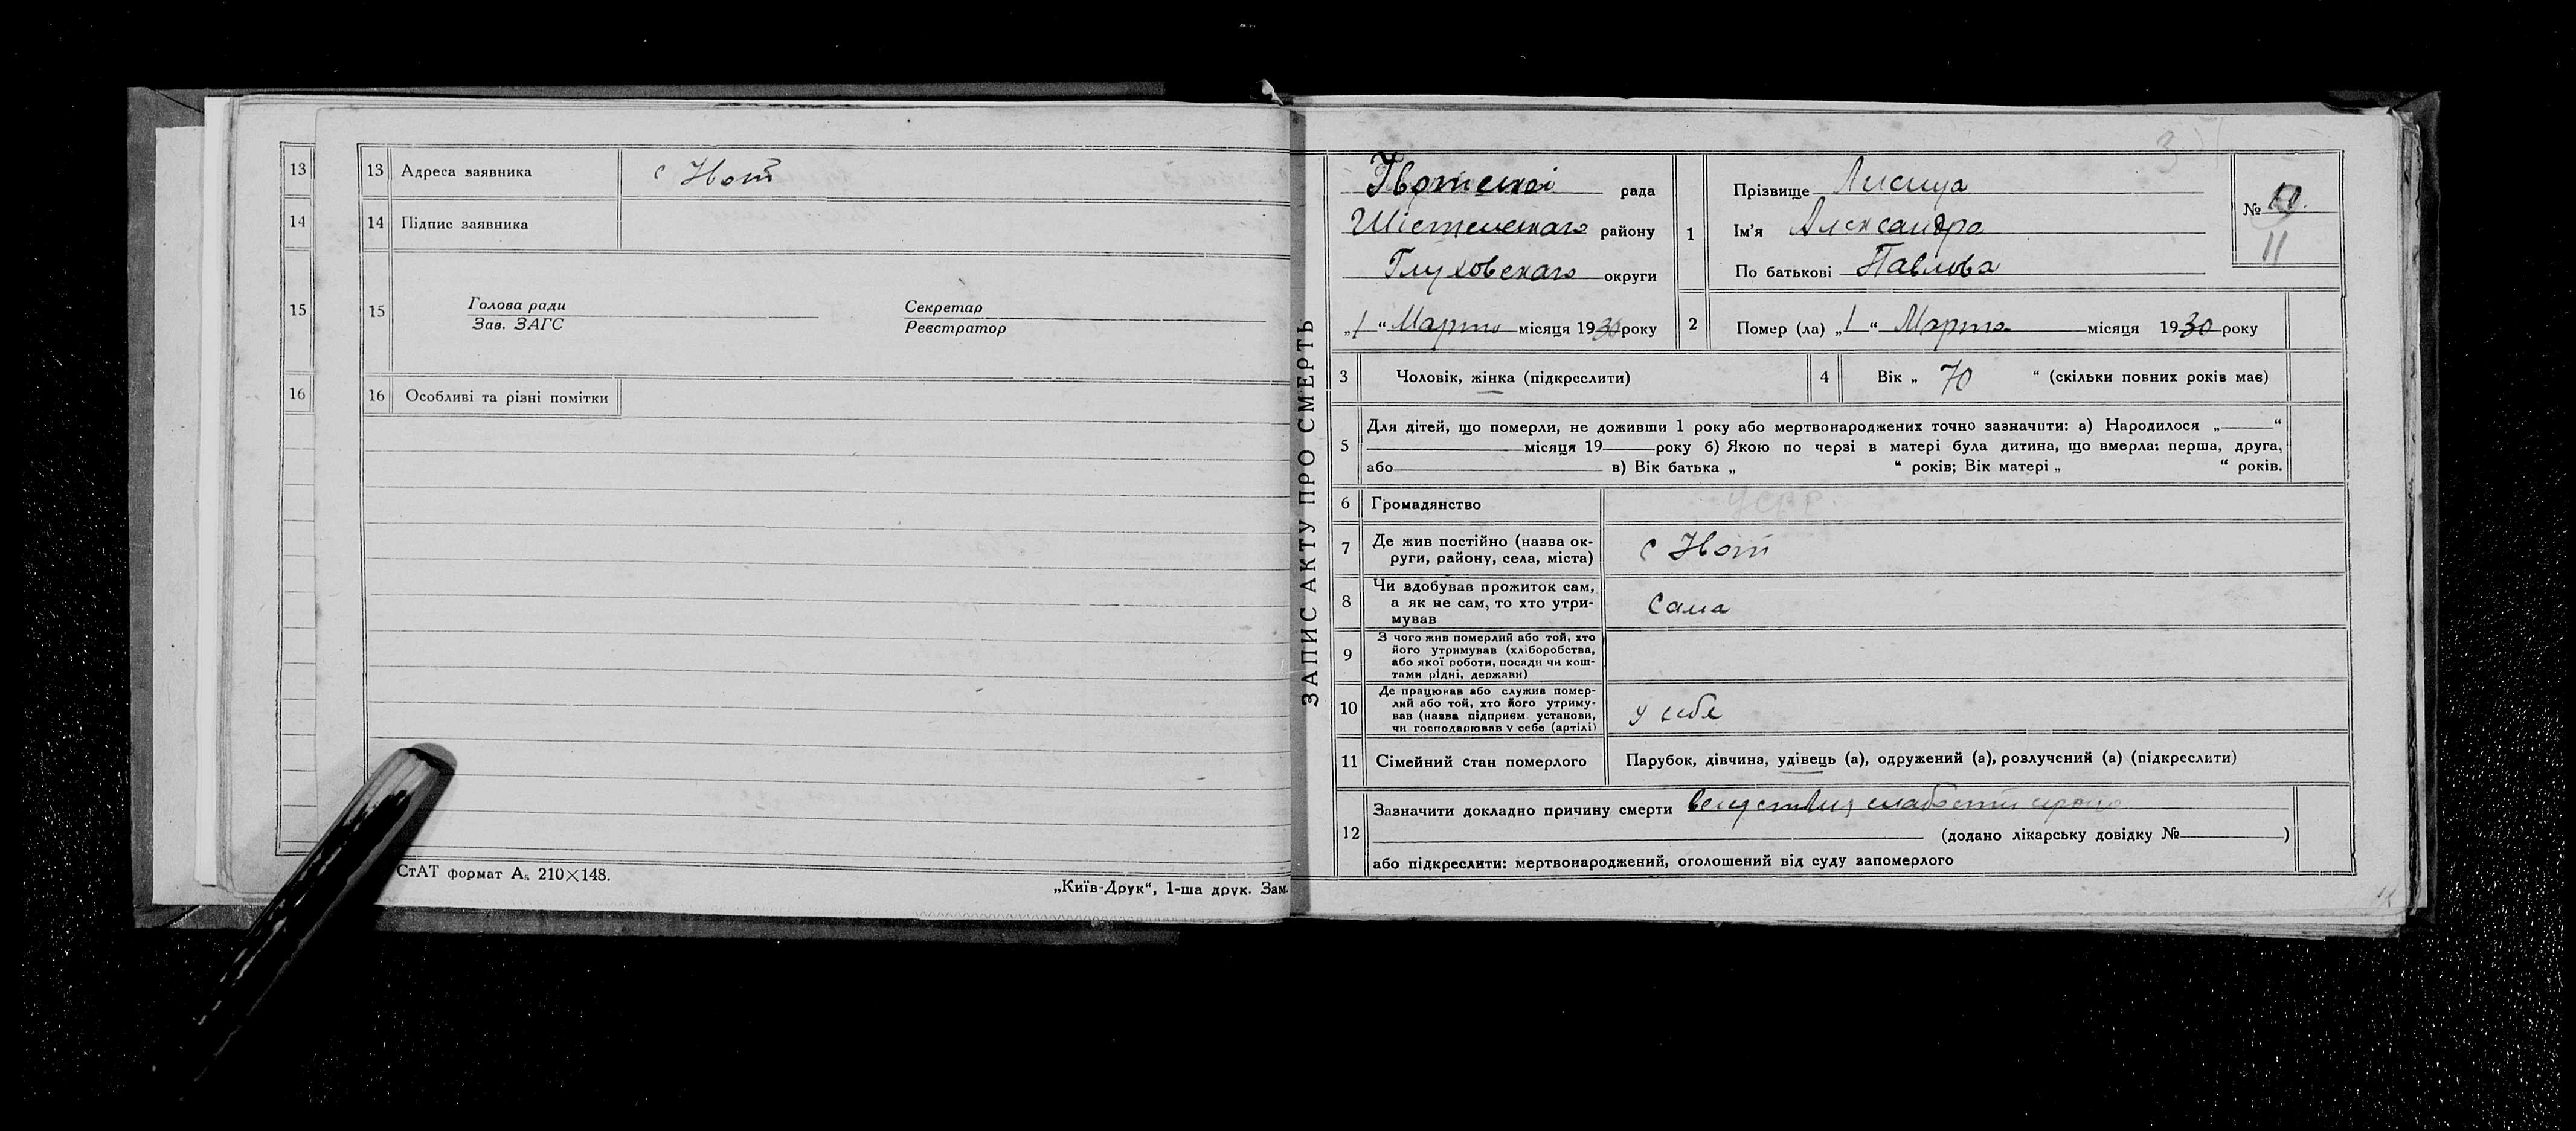 13
14
15
16
13 Адреса заявника с Ивот
14 Підпис заявника
15 Голова ради Секретар
Зав. ЗАГС Реєстратор
16 Особливі та різні помітки
СтАТ формат А₅ 210×148.
„Київ-Друк“, 1-ша друк. Зам.
ЗАПИС АКТУ ПРО СМЕРТЬ
Івотской рада
району
Глуховскаго округи
„1“ Марта місяця 1930 року
1 Прізвище Лисица
Ім'я Александра
По батькові Павлова
№ 10.
11
2 Помер (ла) „1“ Марта місяця 1930 року
3 Чоловік, жінка (підкреслити)
4 Вік „70“ (скільки повних років має)
5 Для дітей, що померли, не доживши 1 року або мертвонароджених точно зазначити: а) Народилося „ “
місяця 19 року б) Якою по черзі в матері була дитина, що вмерла: перша, друга,
або в) Вік батька „ “ років; Вік матері „ “ років.
6 Громадянство УСРР.
7 Де жив постійно (назва ок-
руги, району, села, міста) с Ивот
8 Чи здобував прожиток сам,
а як не сам, то хто утри-
мував Сама
9 З чого жив померлий або той, хто
його утримував (хліборобства,
або якої роботи, посади чи кош-
тами рідні, держави)
10 Де працював або служив помер-
лий або той, хто його утриму-
вав (назва підприєм. установи,
чи господарював у себе (артілі) у себе
11 Сімейний стан померлого Парубок, дівчина, удівець (а), одружений (а), розлучений (а) (підкреслити)
12 Зазначити докладно причину смерти вследствия слабости
(додано лікарську довідку № )
або підкреслити: мертвонароджений, оголошений від суду запомерлого